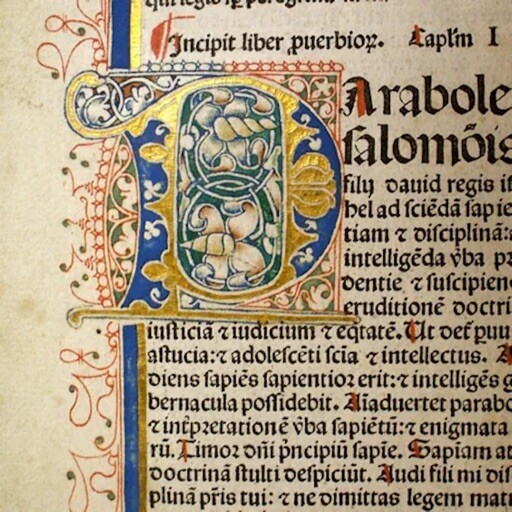 Incipit liber ꝓuerbioꝝ. Caplm̄ I
PArabole
salomōis
filij dauid regis
hel ad sciēdā sapie
tiam ⁊ disciplinā:
intelligēda v̄ba
dentie ⁊ suscipien
eruditionē doctri
iusticiā ⁊ iudicium ⁊ eq̄tatē. Ut det̄ ꝑuu
astucia: ⁊ adolescēti scīa ⁊ intellectus. A
diens sapiēs sapientior erit: ⁊ intelligēs g
bernacula possidebit. Aīaduertet parabo
⁊ int̄pretationē v̄ba sapiētū: ⁊ enigmata
rū. Timor dn̄i pͥncipiū sapīe. Sapiam at
doctrinā stulti despiciūt. Audi fili mi dis
plinā pr̄is tui: ⁊ ne dimittas legem mat